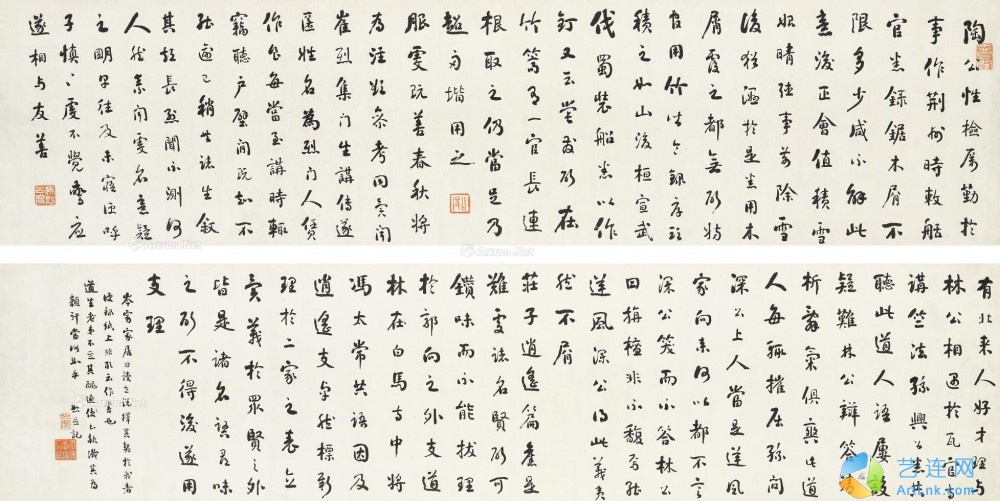 陶公性檢厲勤於
事作荆州時敕船
官悉錄鋸木屑不
限多少咸不解此
意後正會值積雪
始晴聽事前除雪
後猶濕於是悉用木
屑覆之都無所妨
官用竹皆令錄厚頭
積之如山後桓宣武
伐蜀裝船悉以作
釘又云嘗發所在
竹篙有一官長連
根取之仍當足乃
超兩階用之
服虔既善春秋將
為注欲參考同異聞
崔烈集門生講傳遂
匿姓名為烈門人賃
作食每當至講時輒
竊聽戶壁間既知不
踰己稍共諸生敘
其短長烈聞不測何
人然素聞虔名意疑
之明早往及未寤便呼
子慎〻虔不覺驚應
遂相与友善
有北來人好才理与
林公相遇於瓦官
講竺法孫興公悉共
聽此道人語屢設
疑難林公辯答清
析辭氣俱爽此道
人每輒摧屈孫問
深公上人當是逆風
家向來何以都不言
深公笑而不答林公言
曰栴檀非不馥焉能
逆風深公得此義夷
然不屑
莊子逍遙篇舊是
難處諸名賢所可
鑽味而不能拔理
於郭向之外支道
林在白馬寺中將
馮太常共語因及
逍遙支卓然標新
理於二家之表立
異義於眾賢之外
皆是諸名賢尋味
之所不得後遂用
支理
岑寂家居日讀世說擇其契於我者
紙上非敢云作書也
道生老弟不
Artron.Net
艺连网